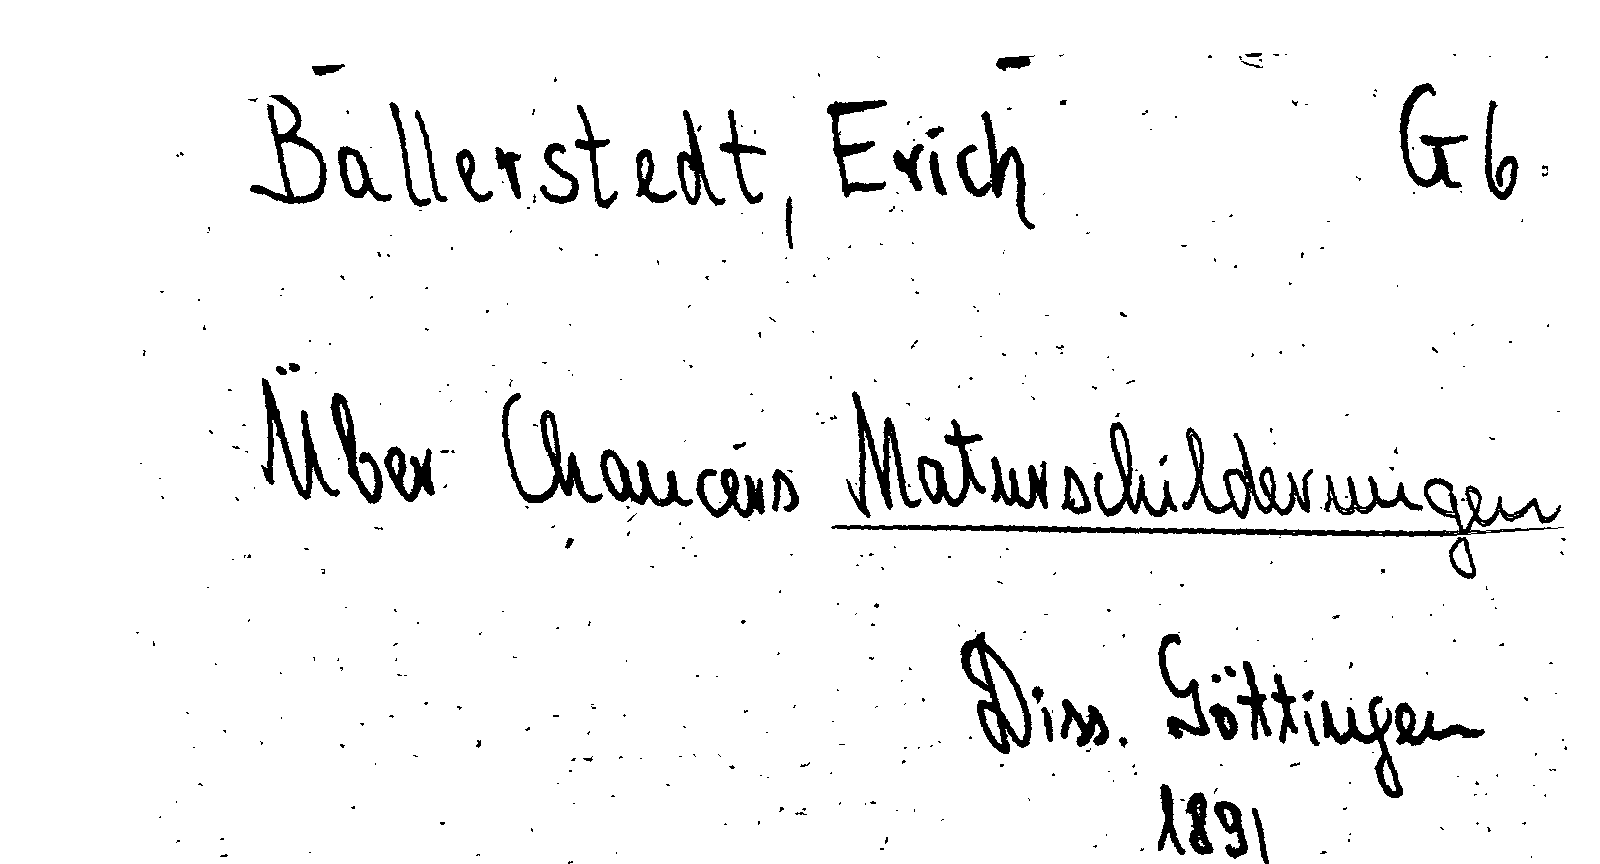 Ballerstedt, Erich G6
Über Chaucers Naturschilderungen
Diss. Göttingen
1891